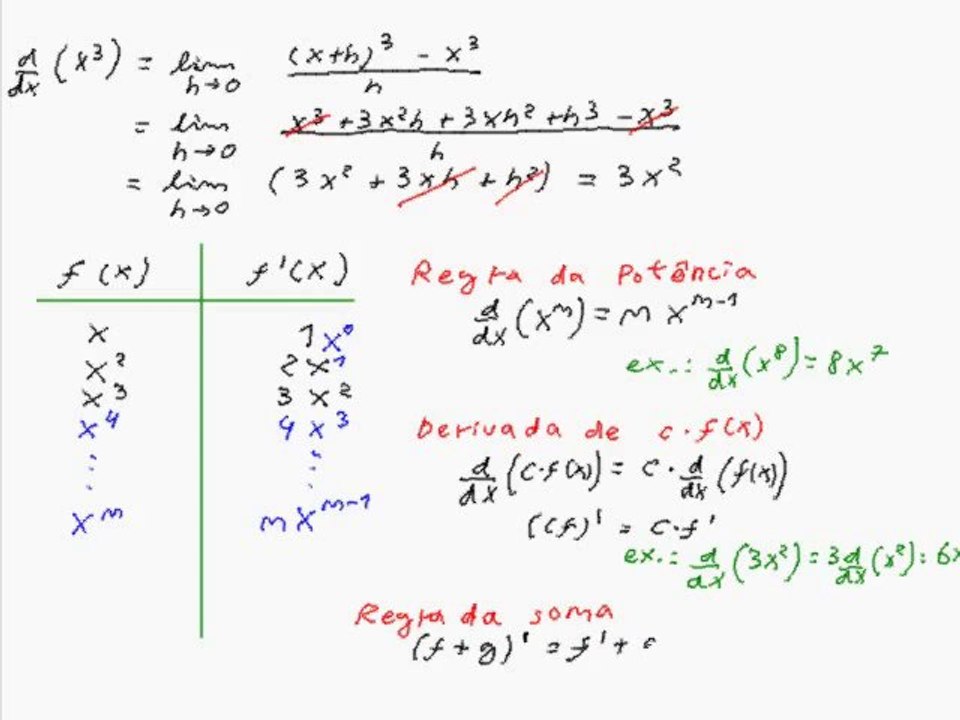 d/dx (x³) = lim h→0 ((x+h)³ - x³)/h
= lim h→0 (x³ + 3x²h + 3xh² + h³ - x³)/h
= lim h→0 (3x² + 3xh + h²) = 3x²
f(x) f'(x)
x 1x⁰
x² 2x¹
x³ 3x²
x⁴ 4x³
⋮ ⋮
xⁿ nxⁿ⁻¹
Regra da Potência
d/dx (xⁿ) = n xⁿ⁻¹
ex.: d/dx (x⁸) = 8x⁷
Derivada de c·f(x)
d/dx (c·f(x)) = c · d/dx (f(x))
(cf)' = c·f'
ex.: d/dx (3x²) = 3 d/dx (x²) = 6x
Regra da soma
(f + g)' = f' +